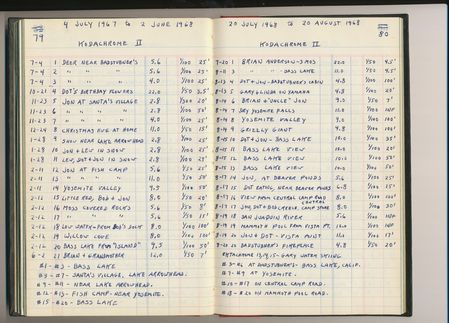 4 JULY 1967 TO 2 JUNE 1968
79
KODACHROME II
7-4 1 DEER NEAR BADSTUBNER'S 5.6 1/100 25'
7-4 2 " " " 5.6 1/100 25'
7-4 3 " " " 4.0 1/100 25'
10-21 4 DOT'S BIRTHDAY FLOWERS 22.0 1/50 3.5'
11-23 5 JON AT SANTA'S VILLAGE 2.8 1/100
11-23 6 " " " 2.8
11-23 7 " " " 4.0 1/100 25'
12-24 8 CHRISTMAS EVE AT HOME 11.0 1/50 15'
1-28 9 SNOW NEAR LAKE ARROWHEAD 2.8 1/100 25'
1-28 10 JON + LEU IN SNOW 2.8 1/100
1-28 11 LEU, DOT + JON IN SNOW 2.8 1/100
2-11 12 JON AT FISH CAMP 5.6 1/50
2-11 13 " " " 11.0 1/50
2-11 14 YOSEMITE VALLEY 9.5 1/100 50'
2-11 15 LITTLE RED, BOB + JON 8.0 1/50 20'
2-12 16 MOSS COVERED ROCKS 5.6 1/50 8'
2-12 17 " " " 5.6 1/50 15'
2-12 18 LOW WATER - FROM BOB'S DOCK 8.0 1/100
2-12 19 WILLOW COVE 8.0 1/100
2-12 20 BASS LAKE FROM "ISLAND" 9.5 1/100 50'
6-2 21 BRIAN + GRANDMOTHER 12.0 1/50
#1 - #3 - BASS LAKE
#5 - #7 - SANTA'S VILLAGE, LAKE ARROWHEAD.
#9 - #11 - NEAR LAKE ARROWHEAD.
#12 - #13 - FISH CAMP - NEAR YOSEMITE.
#15 - #20 - BASS LAKE
20 JULY 1968 TO 20 AUGUST 1968
80
KODACHROME II
7-20 1 BRIAN ANDERSON - 3 MOS 1/50 4.5'
8-13 4 DOT + JON - BADSTUBNER'S CABIN
8-13 5 GARY + LINDA ON YAMAHA 4.8 1/100 20'
8-14 6 BRIAN + "UNCLE" JON 9.0 1/50 7'
8-14 7 DRY YOSEMITE FALLS 11.0 1/100 INF
8-14 8 YOSEMITE VALLEY 9.0 1/100 100'
8-14 9 GRIZZLY GIANT 4.8 1/100 100'
8-15 10 DOT + JON - BASS LAKE 10.0 1/100 35'
8-15 11 BASS LAKE VIEW 10.0 1/100
8-15 12 BASS LAKE VIEW 10.0 1/100 50'
8-15 13 BASS LAKE VIEW 10.0 1/100 50'
8-17 14 JON, AT BEAVER PONDS 5.6 1/100 25'
8-17 15 DOT EATING, NEAR BEAVER PONDS 6.8 1/100 15'
8-17 16 VIEW FROM CENTRAL CAMP ROAD 8.0 1/100
8-18 18 SAN JOAQUIN RIVER 5.6 1/100 INF
8-18 19 MAMMOTH POOL FROM VISTA PT. 12.0 1/100 INF
8-18 20 JON + DOT - VISTA POINT 12.0 1/100
8-20 21 BADSTUBNER'S FIREPLACE 4.8 1/50 20'
EKTACHROME 13,14,15 - GARY WATER SKIING
#3 - #6 AT BADSTUBNER'S - BASS LAKE, CALIF.
#7 - #9 AT YOSEMITE.
#10 - #17 ON CENTRAL CAMP ROAD.
#18 - #20 ON MAMMOTH POOL ROAD.